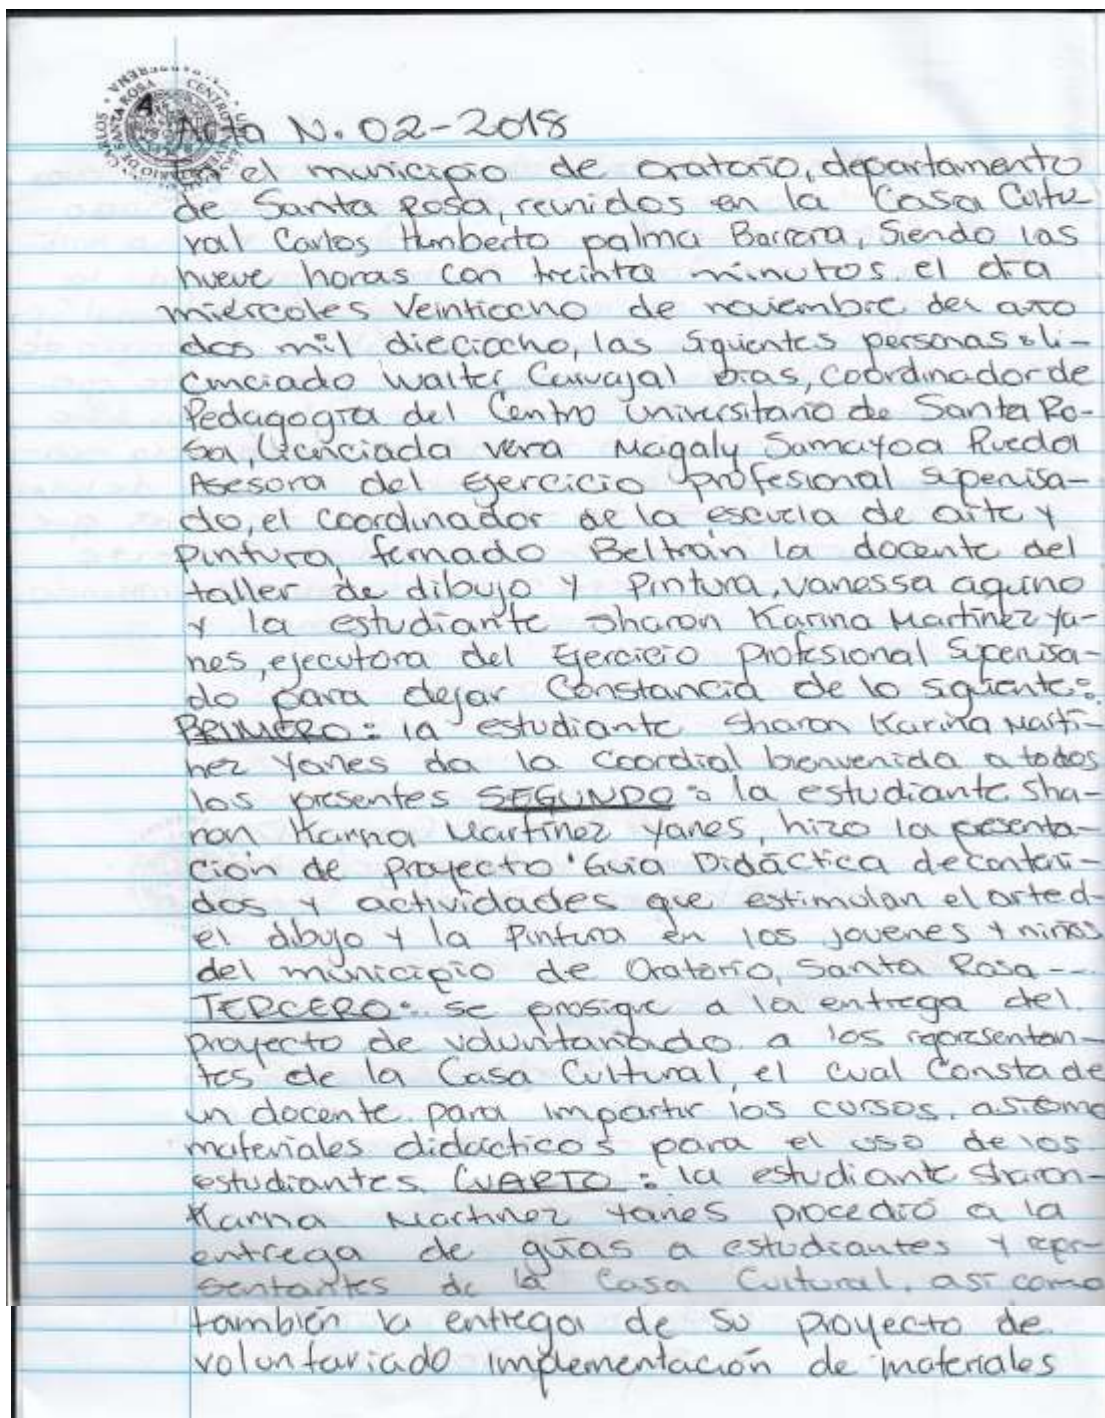 CENTRO UNIVE
DE SANTA ROSA
CARLOS
Acta N. 02-2018
En el municipio de oratorio, departamento
de Santa Rosa, reunidos en la Casa Cultu
ral Carlos Humberto palma Barrera, Siendo las
nueve horas con treinta minutos el día
miércoles Veintiocho de noviembre del año
dos mil dieciocho, las siguientes personas: li-
cinciado Walter Carvajal Dias, coordinador de
Pedagogía del Centro Universitario de Santa Ro-
sa, Licenciada vera Magaly Samayoa Rueda
Asesora del Ejercicio profesional supervisa-
do, el coordinador de la escuela de arte y
pintura, fernado Beltrán la docente del
taller de dibujo y Pintura, vanessa aquino
y la estudiante Sharon Karina Martínez ya-
nes, ejecutora del Ejercicio profesional Supervisa-
do para dejar Constancia de lo siguiente:
PRIMERO: la estudiante Sharon Karina Martí-
nez Yanes da la Coordial bienvenida a todos
los presentes SEGUNDO: la estudiante Sha-
ron Karina Martínez Yanes, hizo la presenta-
ción de proyecto "Guía Didáctica de conteni-
dos y actividades que estimulan el arte d-
el dibujo y la Pintura en los jovenes y niños
del municipio de Oratorio, Santa Rosa--
TERCERO: se prosigue a la entrega del
proyecto de voluntariado a los representan-
tes de la Casa Cultural, el cual Consta de
un docente para impartir los cursos, asi como
materiales didácticos para el uso de los
estudiantes. CUARTO: la estudiante Sharon-
Karina Martínez Yanes procedió a la
entrega de guías a estudiantes y repre-
sentantes de la Casa Cultural, así como
también la entrega de su proyecto de
voluntariado implementación de materiales